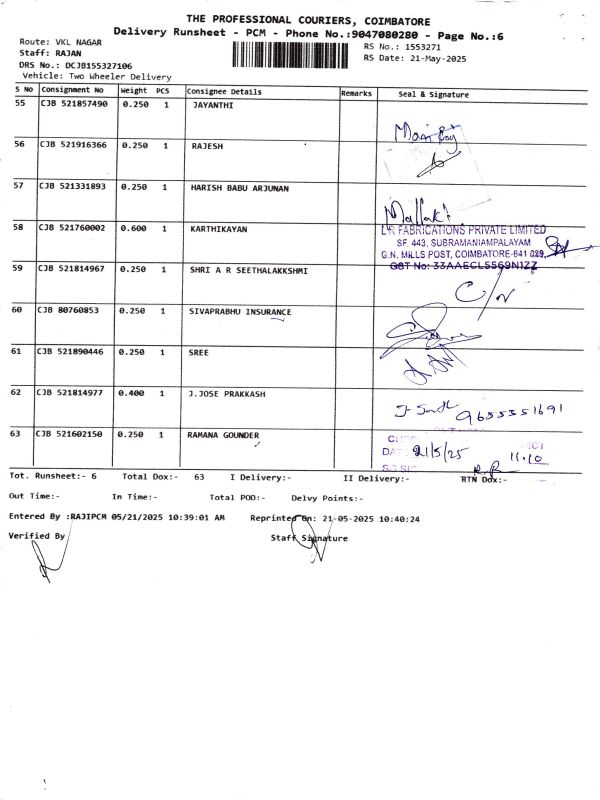 THE PROFESSIONAL COURIERS, COIMBATORE
Delivery Runsheet - PCM - Phone No.:9047080280 - Page No.:6
Route: VKL NAGAR
Staff: RAJAN
DRS No.: DCJB155327106
Vehicle: Two Wheeler Delivery
RS No.: 1553271
RS Date: 21-May-2025
S No Consignment No Weight PCS Consignee Details Remarks Seal & Signature
55 CJB 521857490 0.250 1 JAYANTHI
56 CJB 521916366 0.250 1 RAJESH
57 CJB 521331893 0.250 1 HARISH BABU ARJUNAN
58 CJB 521760002 0.600 1 KARTHIKAYAN
FABRICATIONS PRIVATE LIMITED
SF, 443, SUBRAMANIAMPALAYAM
G.N. MILLS POST, COIMBATORE-641 029.
GST No: 33AAECL5569N1ZZ
59 CJB 521814967 0.250 1 SHRI A R SEETHALAKKSHMI
60 CJB 80760853 0.250 1 SIVAPRABHU INSURANCE
61 CJB 521890446 0.250 1 SREE
62 CJB 521814977 0.400 1 J.JOSE PRAKKASH
9655551691
63 CJB 521602150 0.250 1 RAMANA GOUNDER
21/5/25 11.10
Tot. Runsheet:- 6 Total Dox:- 63 I Delivery:- II Delivery:- RTN Dox:-
Out Time:- In Time:- Total POD:- Delvy Points:-
Entered By :RAJIPCM 05/21/2025 10:39:01 AM Reprinted On: 21-05-2025 10:40:24
Verified By Staff Signature